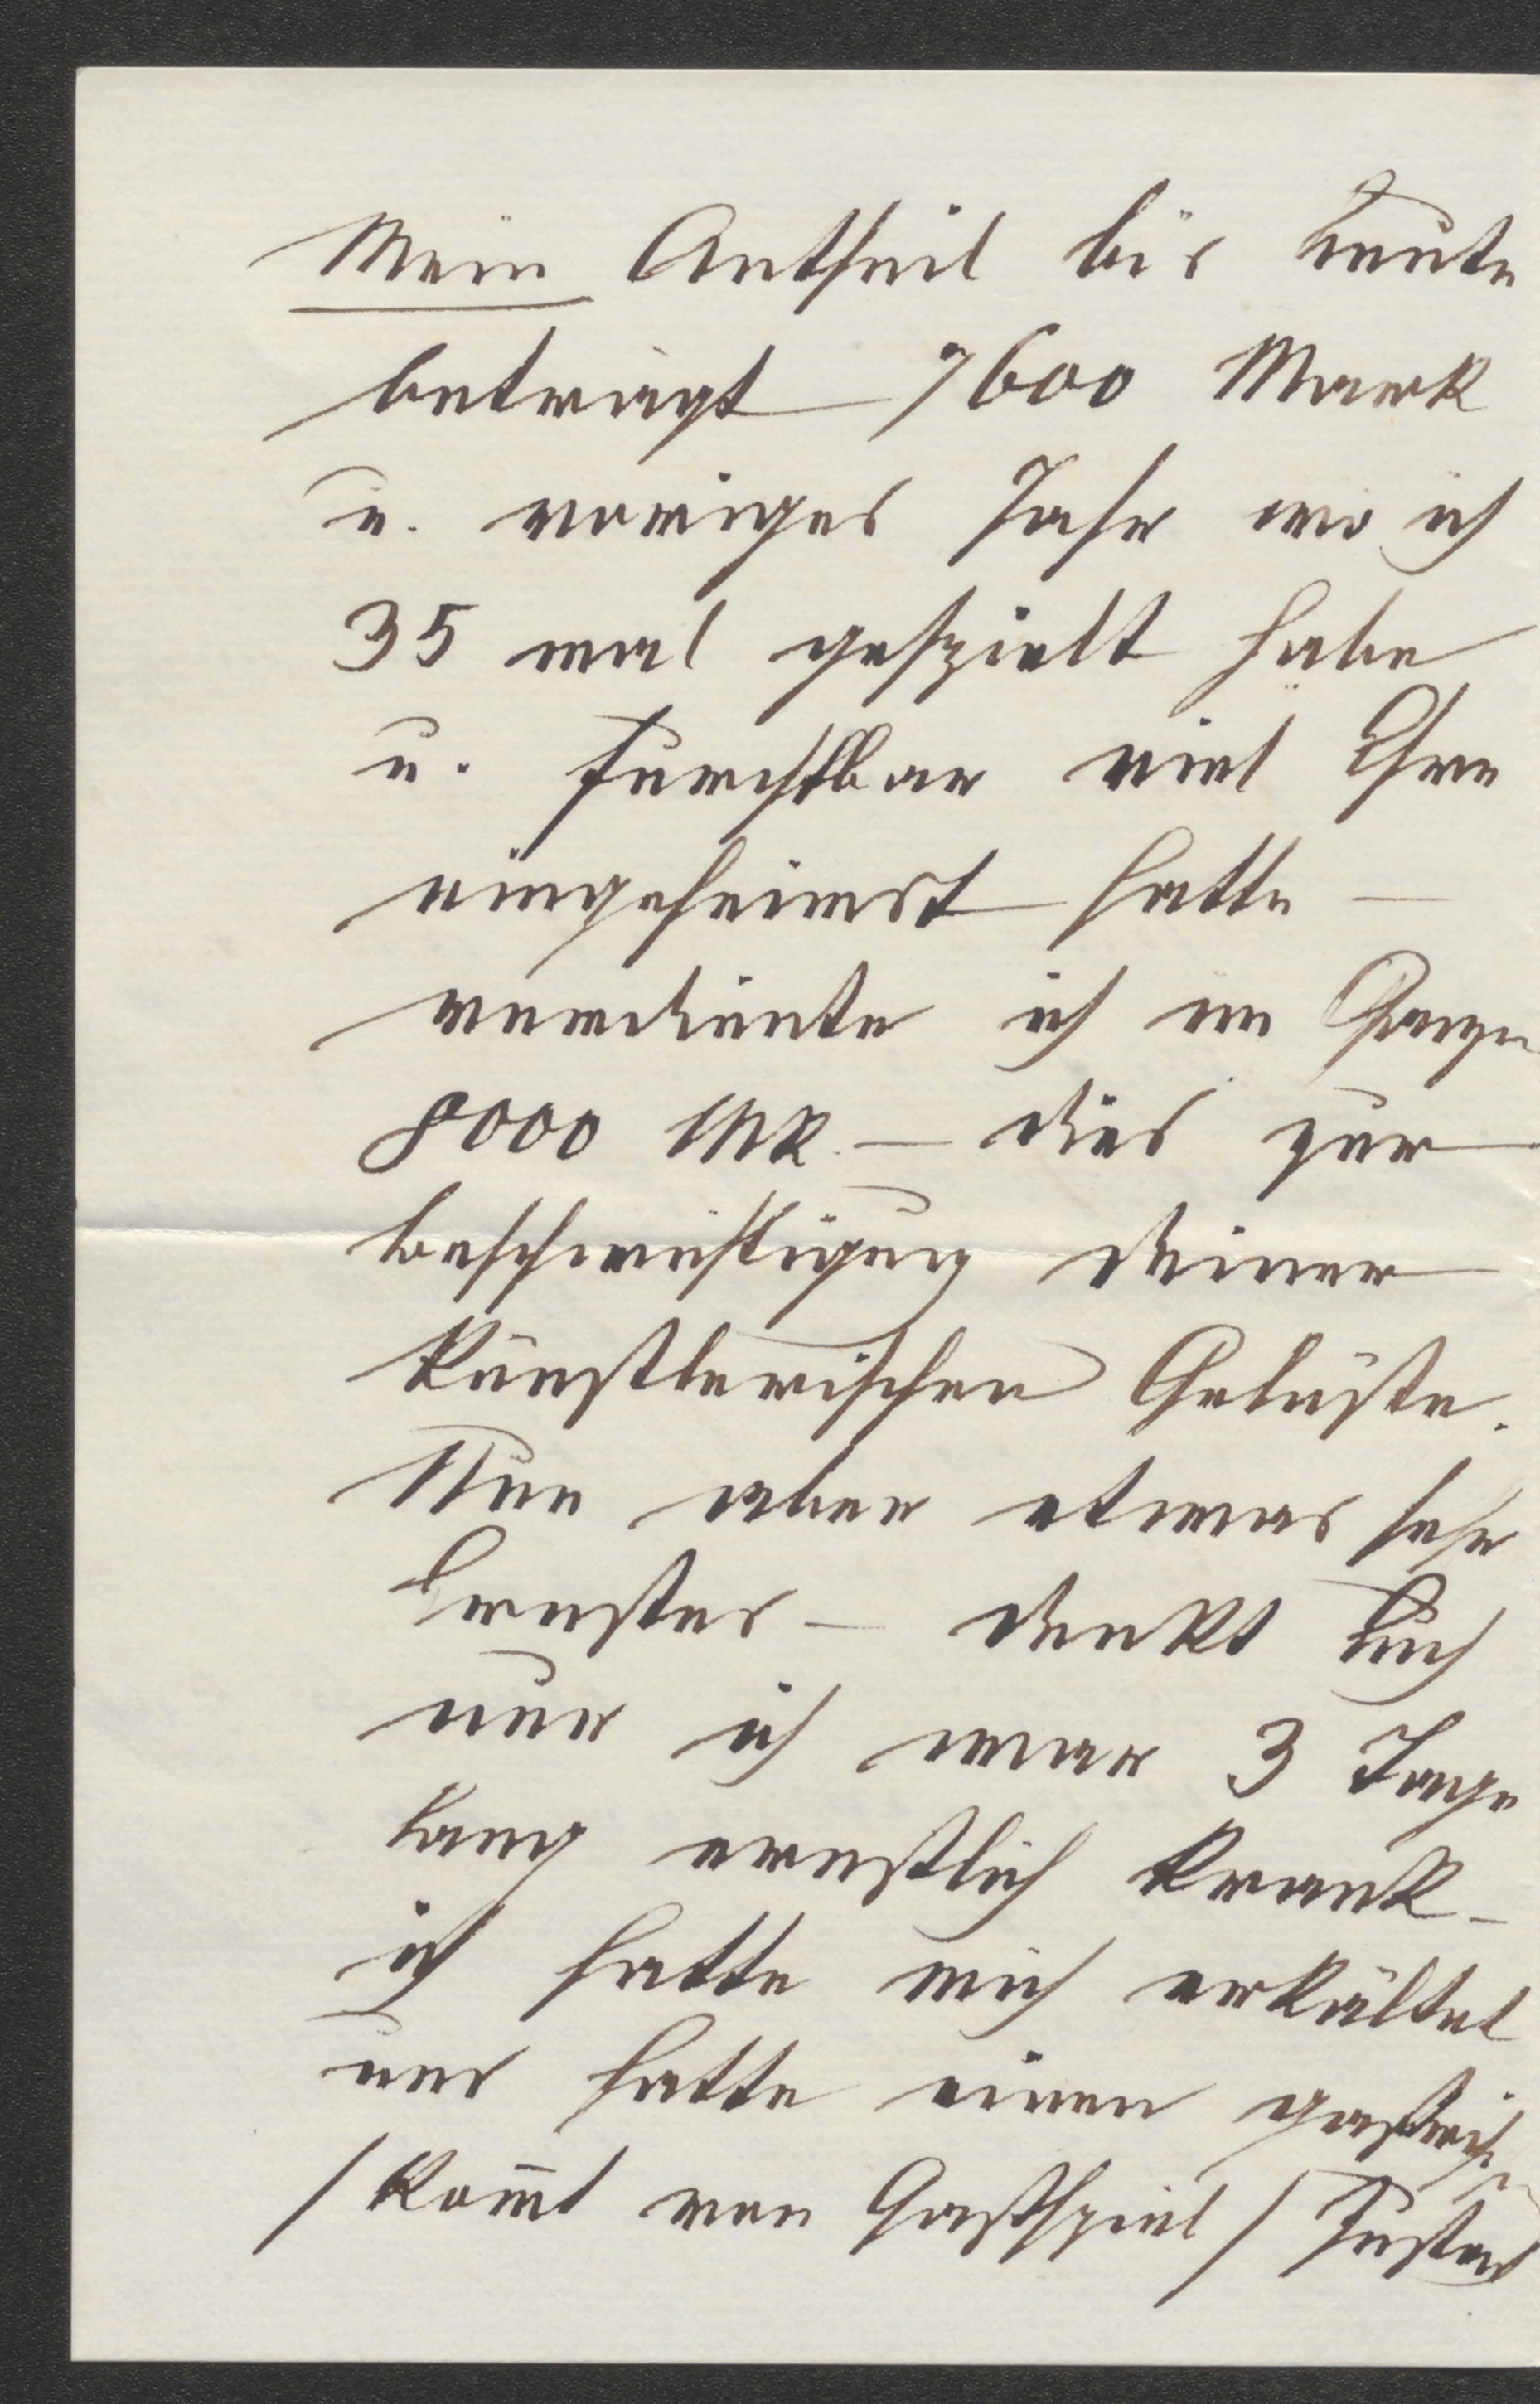 Mein Antheil bis heute
beträgt 7600 Mark
u. voriges Jahr wo ich
35 mal gespielt habe
u. furchtbar viel Ehre
eingeheimst hatte —
verdiente ich im Ganzen
8000 Mk. — dies zur
beschwichtigung Deiner
künstlerischen Gelüste.
Nun aber etwas sehr
Ernstes — denkt Euch
nur ich war 3 Tage
lang ernstlich krank —
ich hatte mich erkältet
und hatte einen gastrischen
/ kom̄t von Gastspiel /